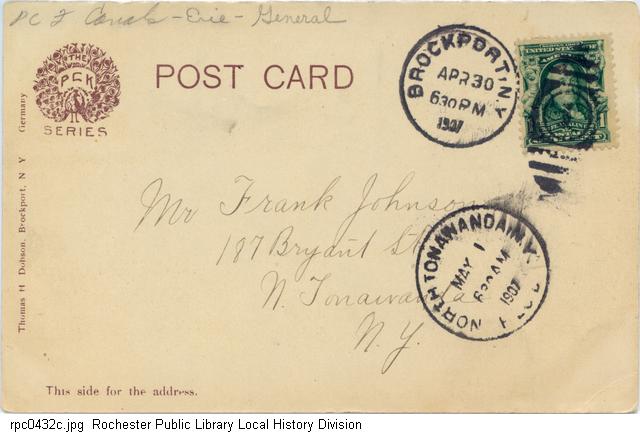 PC F Canals - Erie - General
THE
P.C.K
SERIES
POST CARD
BROCKPORT, N.Y.
APR 30
630 PM
1907
UNITED STATES
1
Germany
Thomas H Dobson, Brockport, N Y
Mr Frank Johnson
187 Bryant St
N. Tonawanda
N.Y.
NORTH TONAWANDA, N.Y.
MAY 1
630 AM
1907
REC'D
This side for the address.
rpc0432c.jpg Rochester Public Library Local History Division